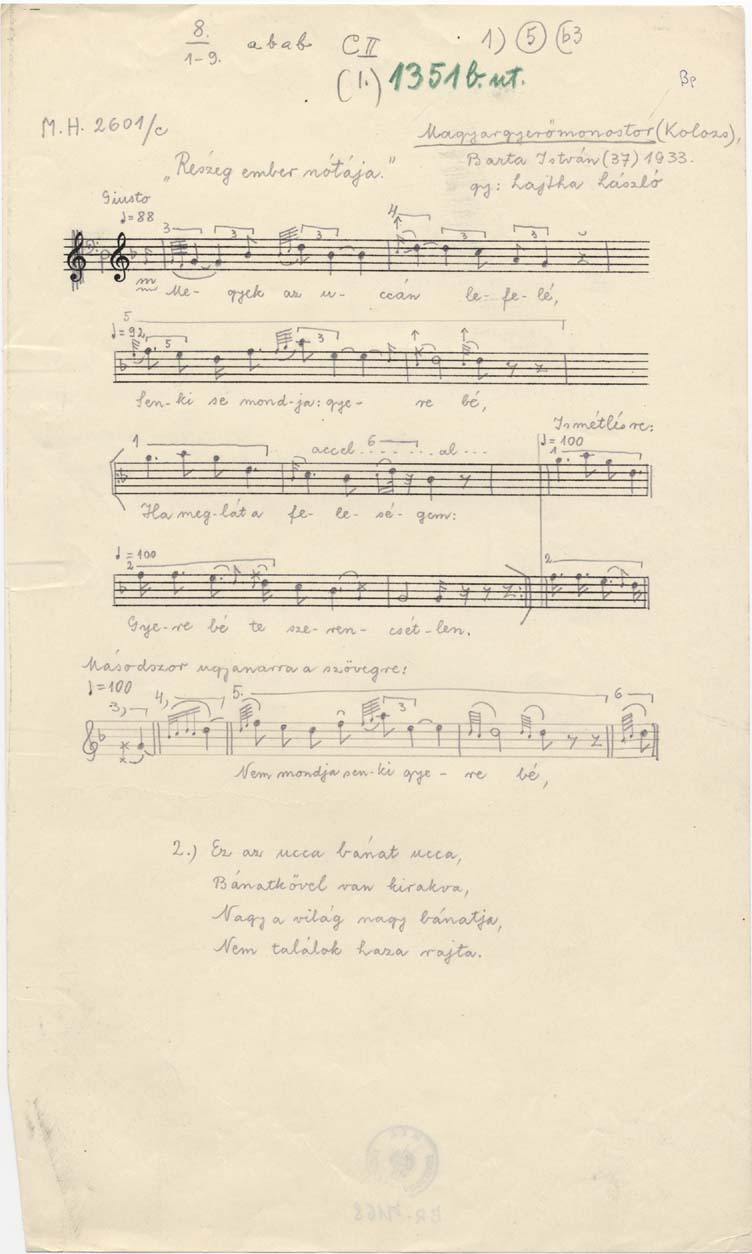 8. abab C II 1) 5 (b3
1-9. (I.) 1351b. ut. Bp
M.H. 2601/c Magyargyerőmonostor (Kolozs),
Barta István (37) 1933.
„Részeg ember nótája." gy: Lajtha László
Giusto
♩=88
3 3 3 4 3 3
Me- gyek az u- ccán le- fe- lé,
5
♩=92 5 3
Sen-ki se mond-ja: gye- re bé,
Ismétlésre:
1 accel......al... 6 ♩=100 1
Ha meg-lát a fe- le- sé- gem:
♩=100
2 2
Gye-re bé te sze-ren- csét-len.
Másodszor ugyanarra a szövegre:
♩=100
3) 4) 5. 3 6
Nem mondja sen-ki gye- re bé,
2.) Ez az ucca bánat ucca,
Bánatkővel van kirakva,
Nagy a világ nagy bánatja,
Nem találok haza rajta.